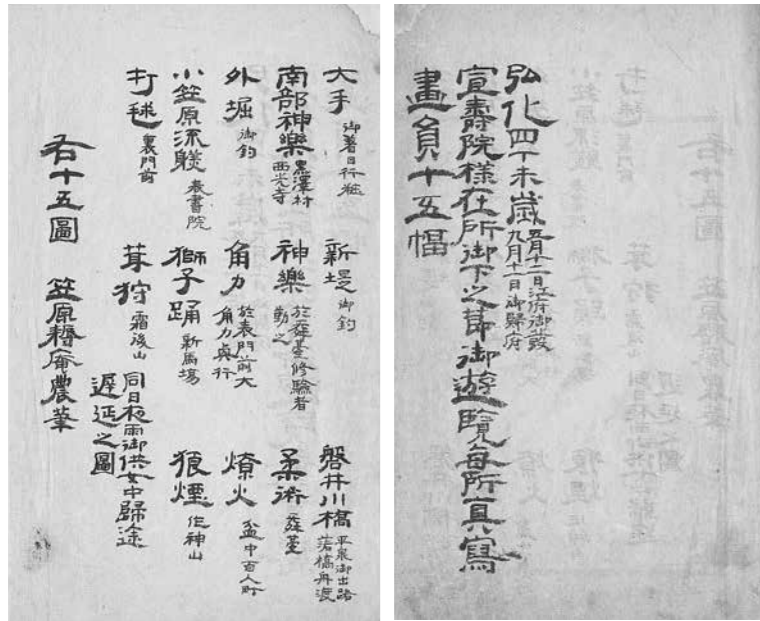 弘化四丁未歳 五月十二日江府御發
九月十一日御歸府
宣壽院様在所御下之節御遊覽毎所真寫
畫員十五幅
大手 御着日行粧
新堤 御釣
磐井川橋 平泉御出路
落橋舟渡
南部神樂 黒澤村
西光寺
神樂 於舞臺修驗者
勤之
柔術 舞臺
外堀 御釣
角力 於表門前大
角力興行
燎火 盆中百人町
小笠原流躾 表書院
獅子踊 新馬場
狼煙 作神山
打毬 裏門前
茸狩 霜後山
同日夜雨御供女中歸途
遲延之圖
右十五圖 笠原耨庵農筆